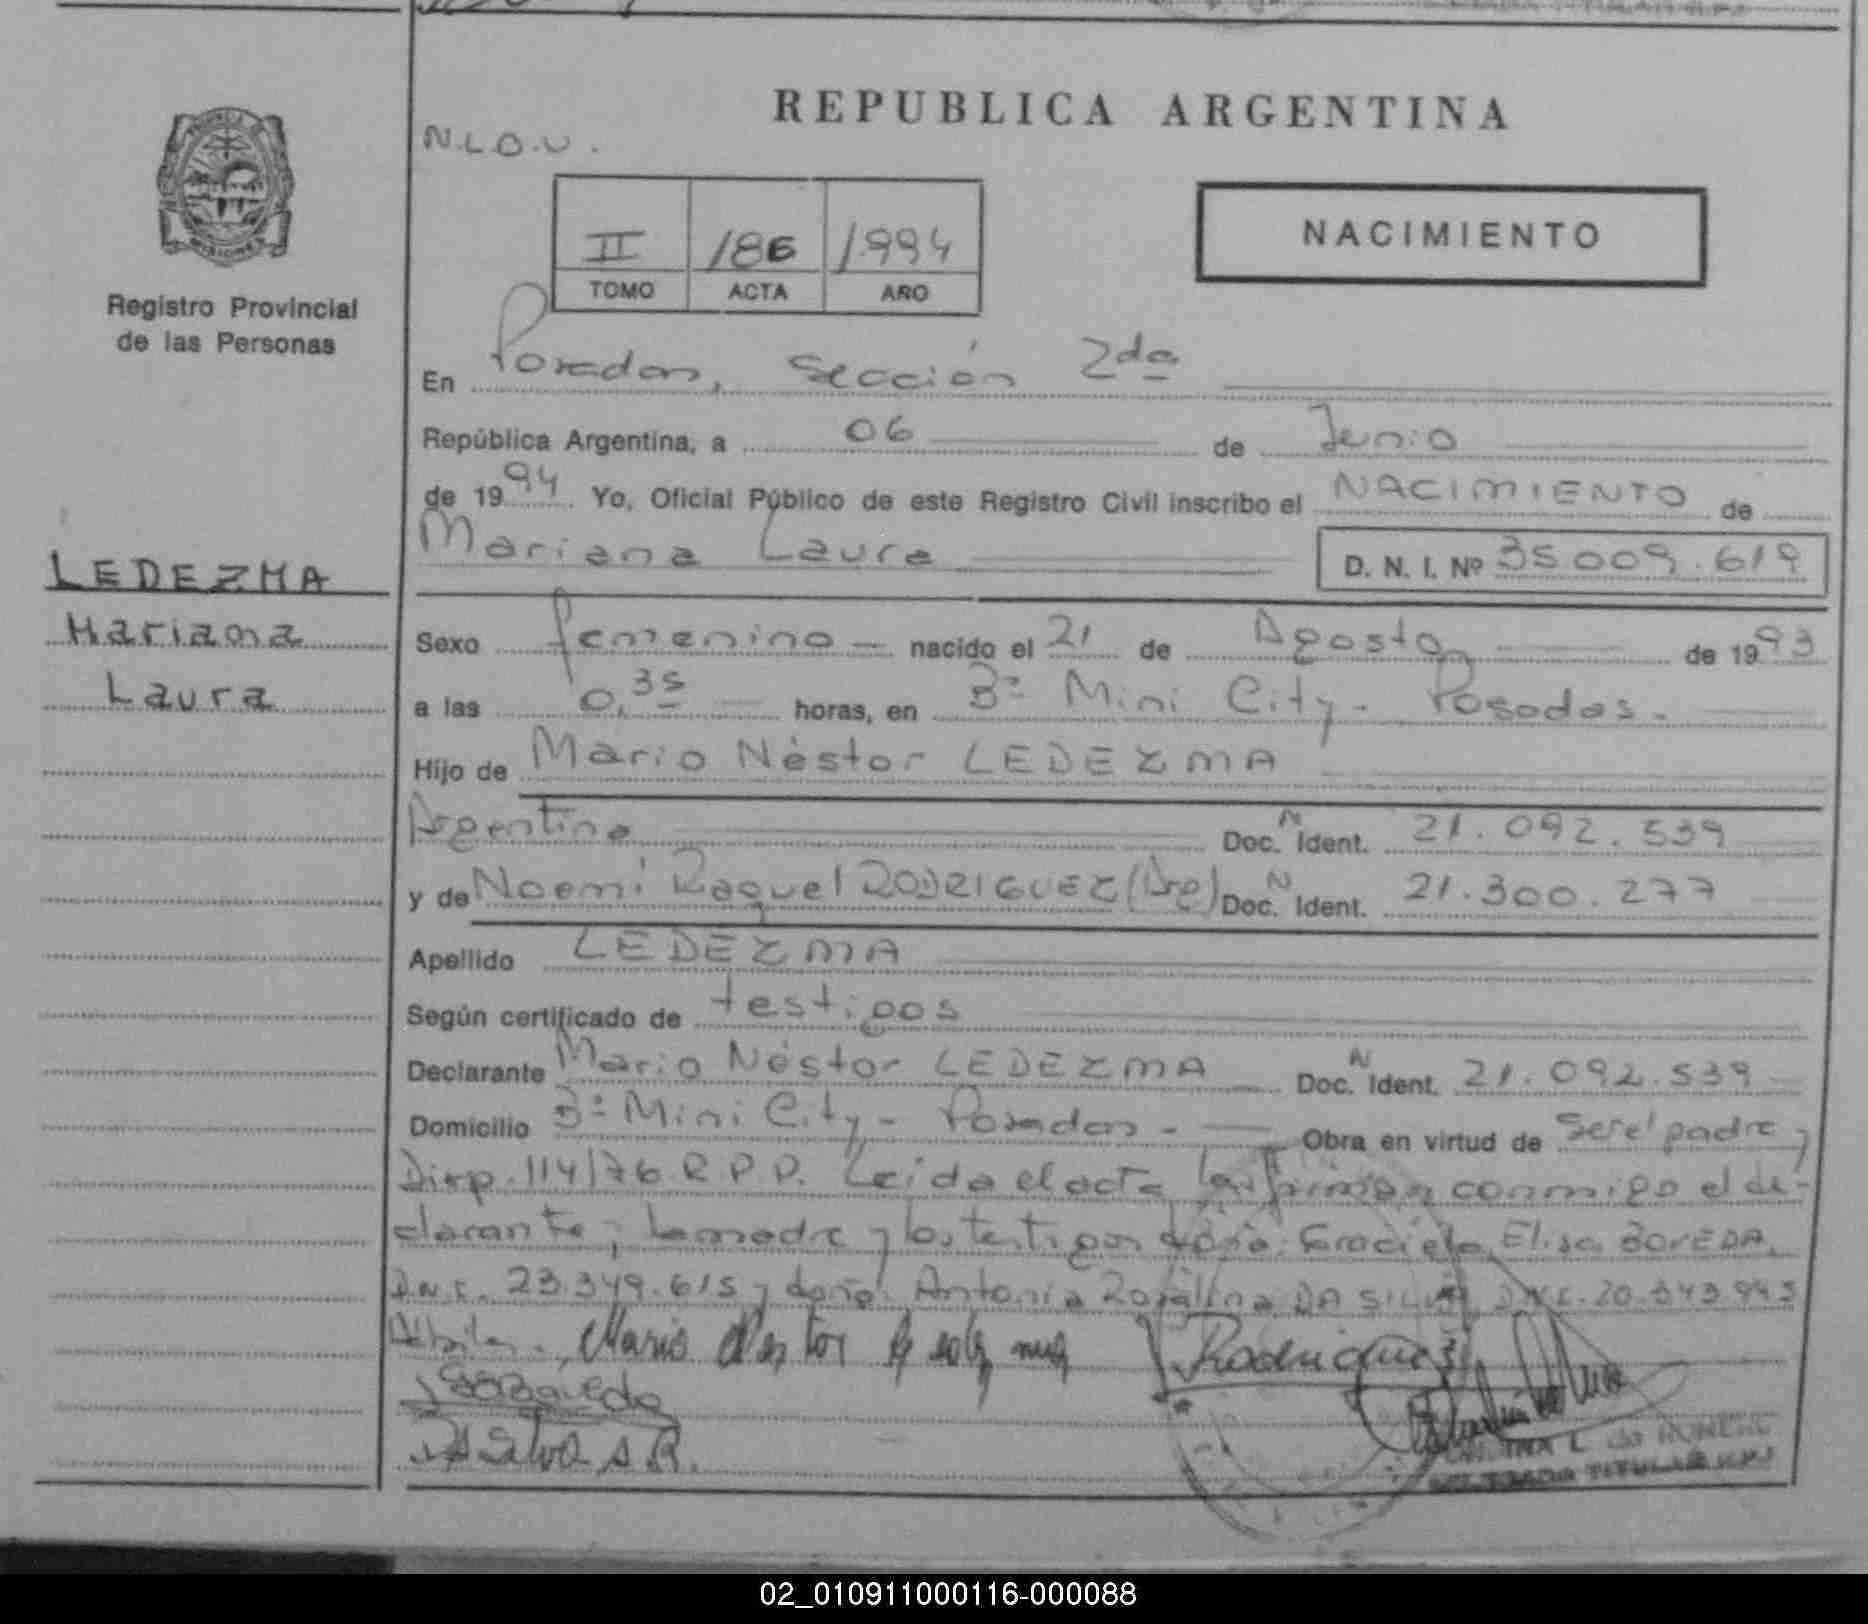 REPUBLICA ARGENTINA
N.L.O.U.
NACIMIENTO
II 186 1.994
TOMO ACTA AÑO
Registro Provincial
de las Personas
En Posadas, Sección 2da
República Argentina, a 06 de Junio
de 1994 Yo, Oficial Público de este Registro Civil inscribo el NACIMIENTO de
Mariana Laura D. N. I. Nº 35009.619
LEDEZMA
Mariana
Laura
Sexo femenino nacido el 21 de Agosto de 1993
a las 0,35 horas, en Bº Mini City - Posadas.
Hijo de Mario Néstor LEDEZMA
Argentino Doc. N Ident. 21.092.539
y de Noemí Raquel RODRIGUEZ (Arg) Doc. N Ident. 21.300.277
Apellido LEDEZMA
Según certificado de testigos
Declarante Mario Néstor LEDEZMA Doc. N Ident. 21.092.539
Domicilio Bº Mini City - Posadas - Obra en virtud de ser el padre y
Disp. 114/76 R.P.P. Leída el acta la firman conmigo el de-
clarante, la madre y los testigos doña Graciela Elisa
D.N.I. 23.349.615 y doña Antonia DA SILVA D.N.I. 20.343.943
Mario Nestor Rodriguez
Da Silva A R.
TITULAR
02_010911000116-000088